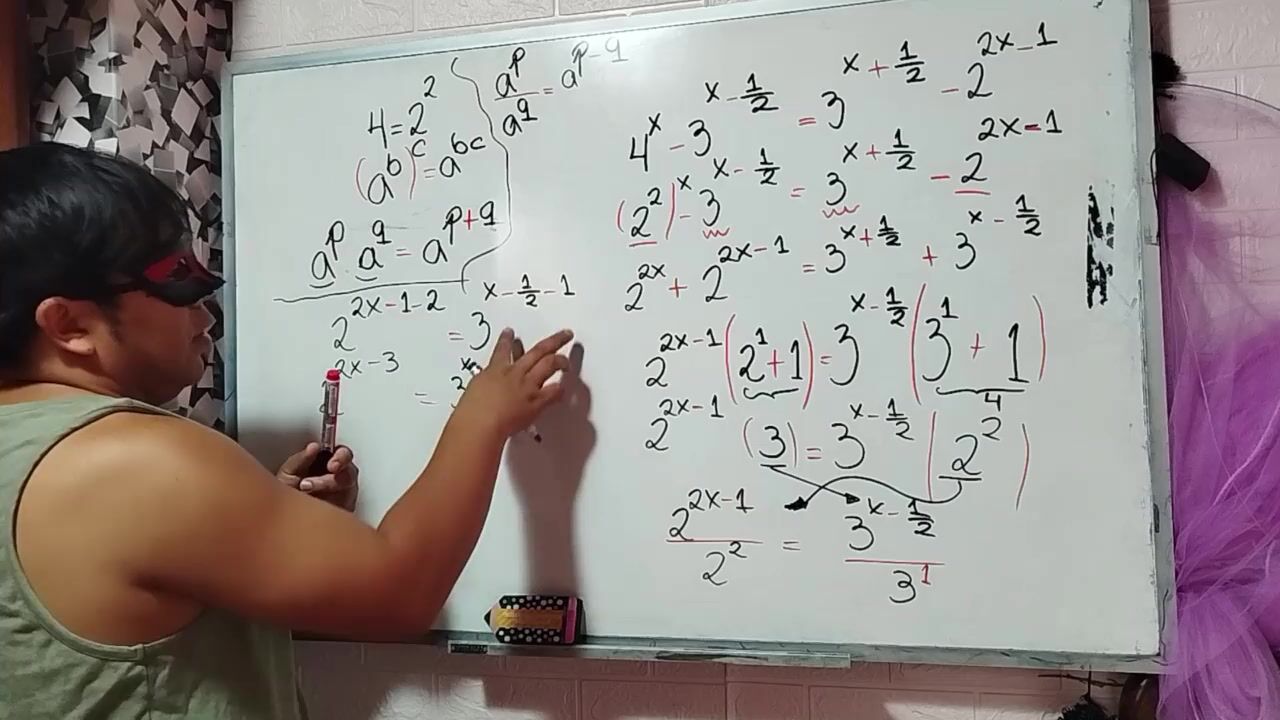 4=2^2
(a^b)^c=a^bc
a^p·a^q=a^p+q
a^p/a^q=a^p-q
2^2x-1-2=3^x-1/2-1
2x-3 =
4^x-3^x-1/2=3^x+1/2-2^2x-1
(2^2)^x-3^x-1/2=3^x+1/2-2^2x-1
2^2x+2^2x-1=3^x+1/2+3^x-1/2
2^2x-1(2^1+1)=3^x-1/2(3^1+1)
4
2^2x-1(3)=3^x-1/2(2^2)
2^2x-1/2^2=3^x-1/2/3^1